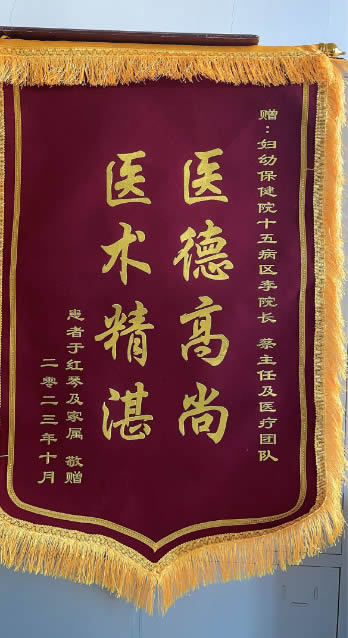 赠：妇幼保健院十五病区李院长 蔡主任及医疗团队
医德高尚
医术精湛
患者于红琴及家属 敬赠
二零二三年十月